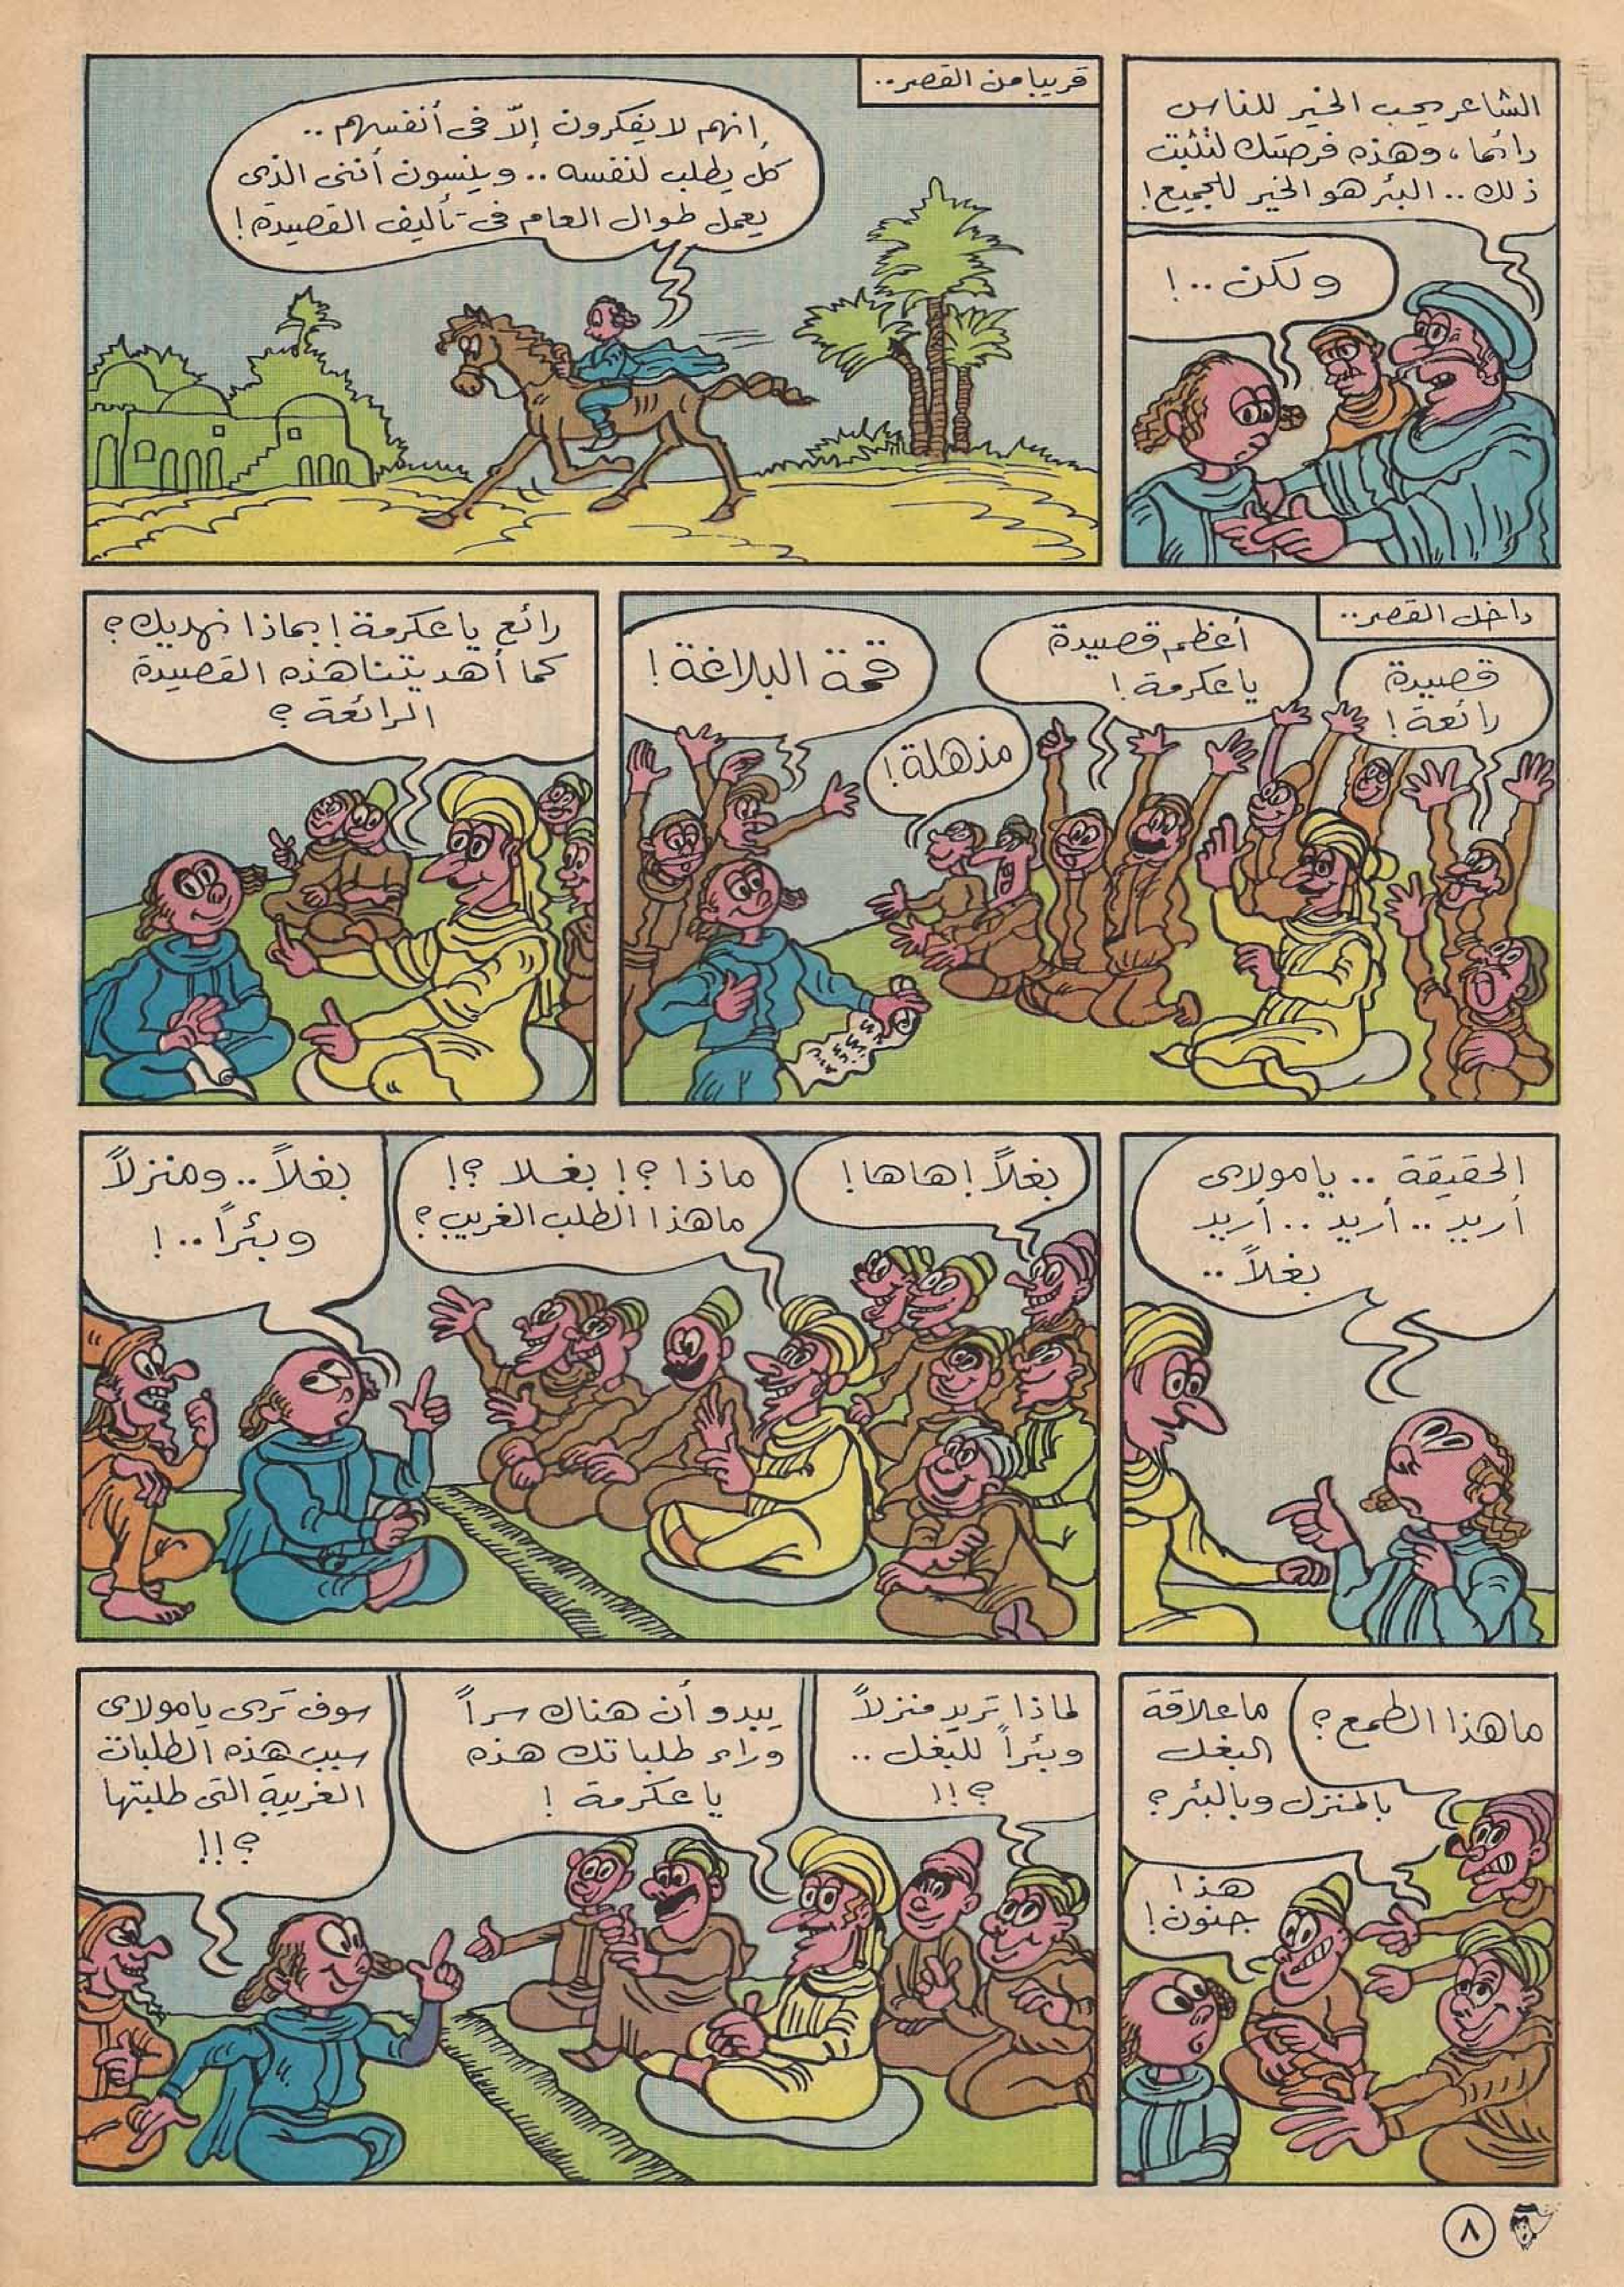 الشاعر يحب الخير للناس
دائما، وهذه فرصتك لتثبت
ذلك.. البئر هو الخير للجميع!
ولكن..!
قريبا من القصر..
إنهم لا يفكرون إلّا فى أنفسهم..
كل يطلب لنفسه.. وينسون أننى الذى
يعمل طوال العام فى تأليف القصيدة!
داخل القصر..
قصيدة
رائعة!
أعظم قصيدة
يا عكرمة!
مذهلة!
قمة البلاغة!
رائع يا عكرمة! بماذا نهديك؟
كما أهديتنا هذه القصيدة
الرائعة؟
الحقيقة.. يا مولاى
أريد.. أريد.. أريد
بغلاً..
بغلاً! هاها!
ماذا؟! بغلا؟!
ما هذا الطلب الغريب؟
بغلاً.. ومنزلاً
وبئراً..!
ما هذا الطمع؟
ما علاقة
البغل
بالمنزل وبالبئر؟
هذا
جنون!
لماذا تريد منزلاً
وبئراً للبغل..
؟!!
يبدو أن هناك سراً
وراء طلباتك هذه
يا عكرمة!
سوف ترى يا مولاى
سبب هذه الطلبات
الغريبة التى طلبتها
؟!!
٨